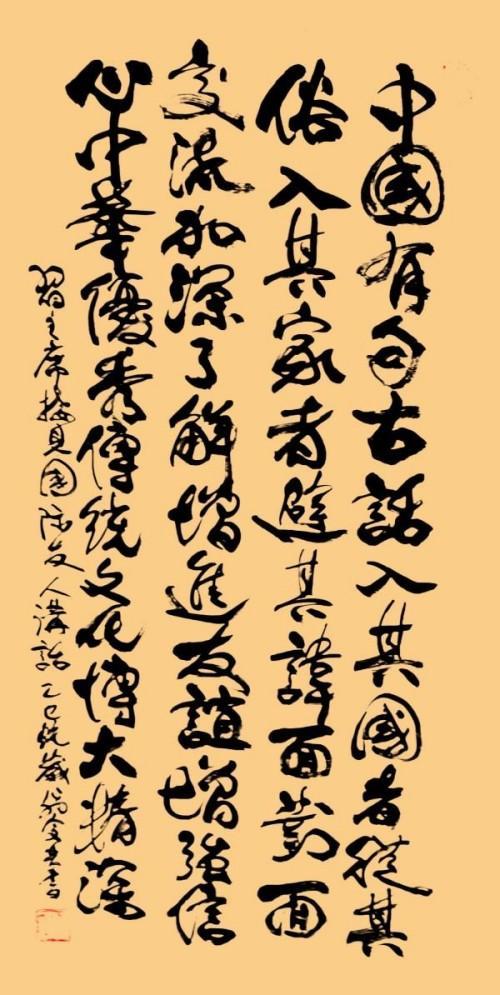 中國有句古話入其國者從其
俗入其家者避其諱面對面
交流加深了解增進友誼增強信
心中華優秀傳統文化博大精深
習主席接見國際友人講話乙巳